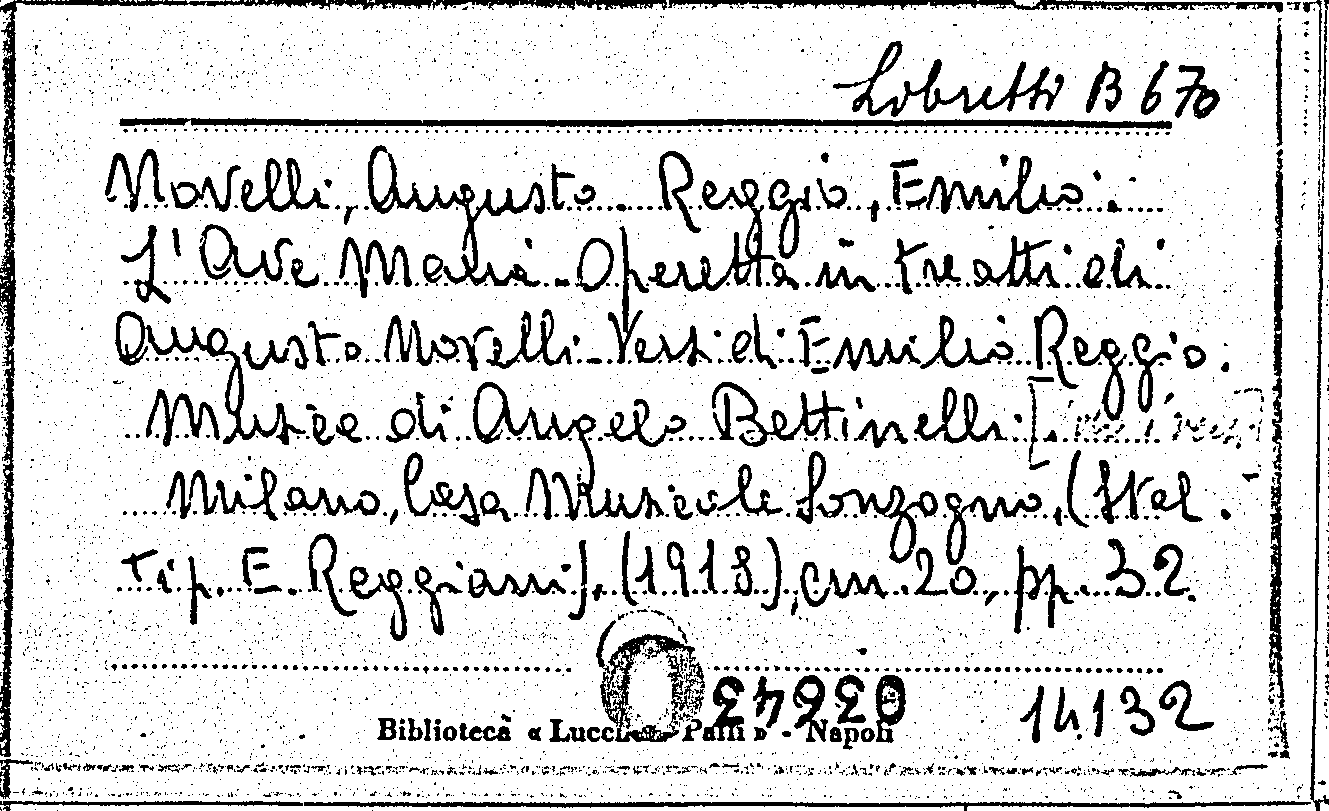 Libretti B 670
Novelli, Augusto - Reggio, Emilio:
L'Ave Maria - Operetta in tre atti di
Augusto Novelli - Versi di Emilio Reggio.
Musica di Angelo Bettinelli. [
Milano, Casa Musicale Sonzogno, (Stel.
Tip. E. Reggiani), (1918), cm. 20, pp. 32.
03643
Biblioteca « Lucchesi Palli » - Napoli
14132